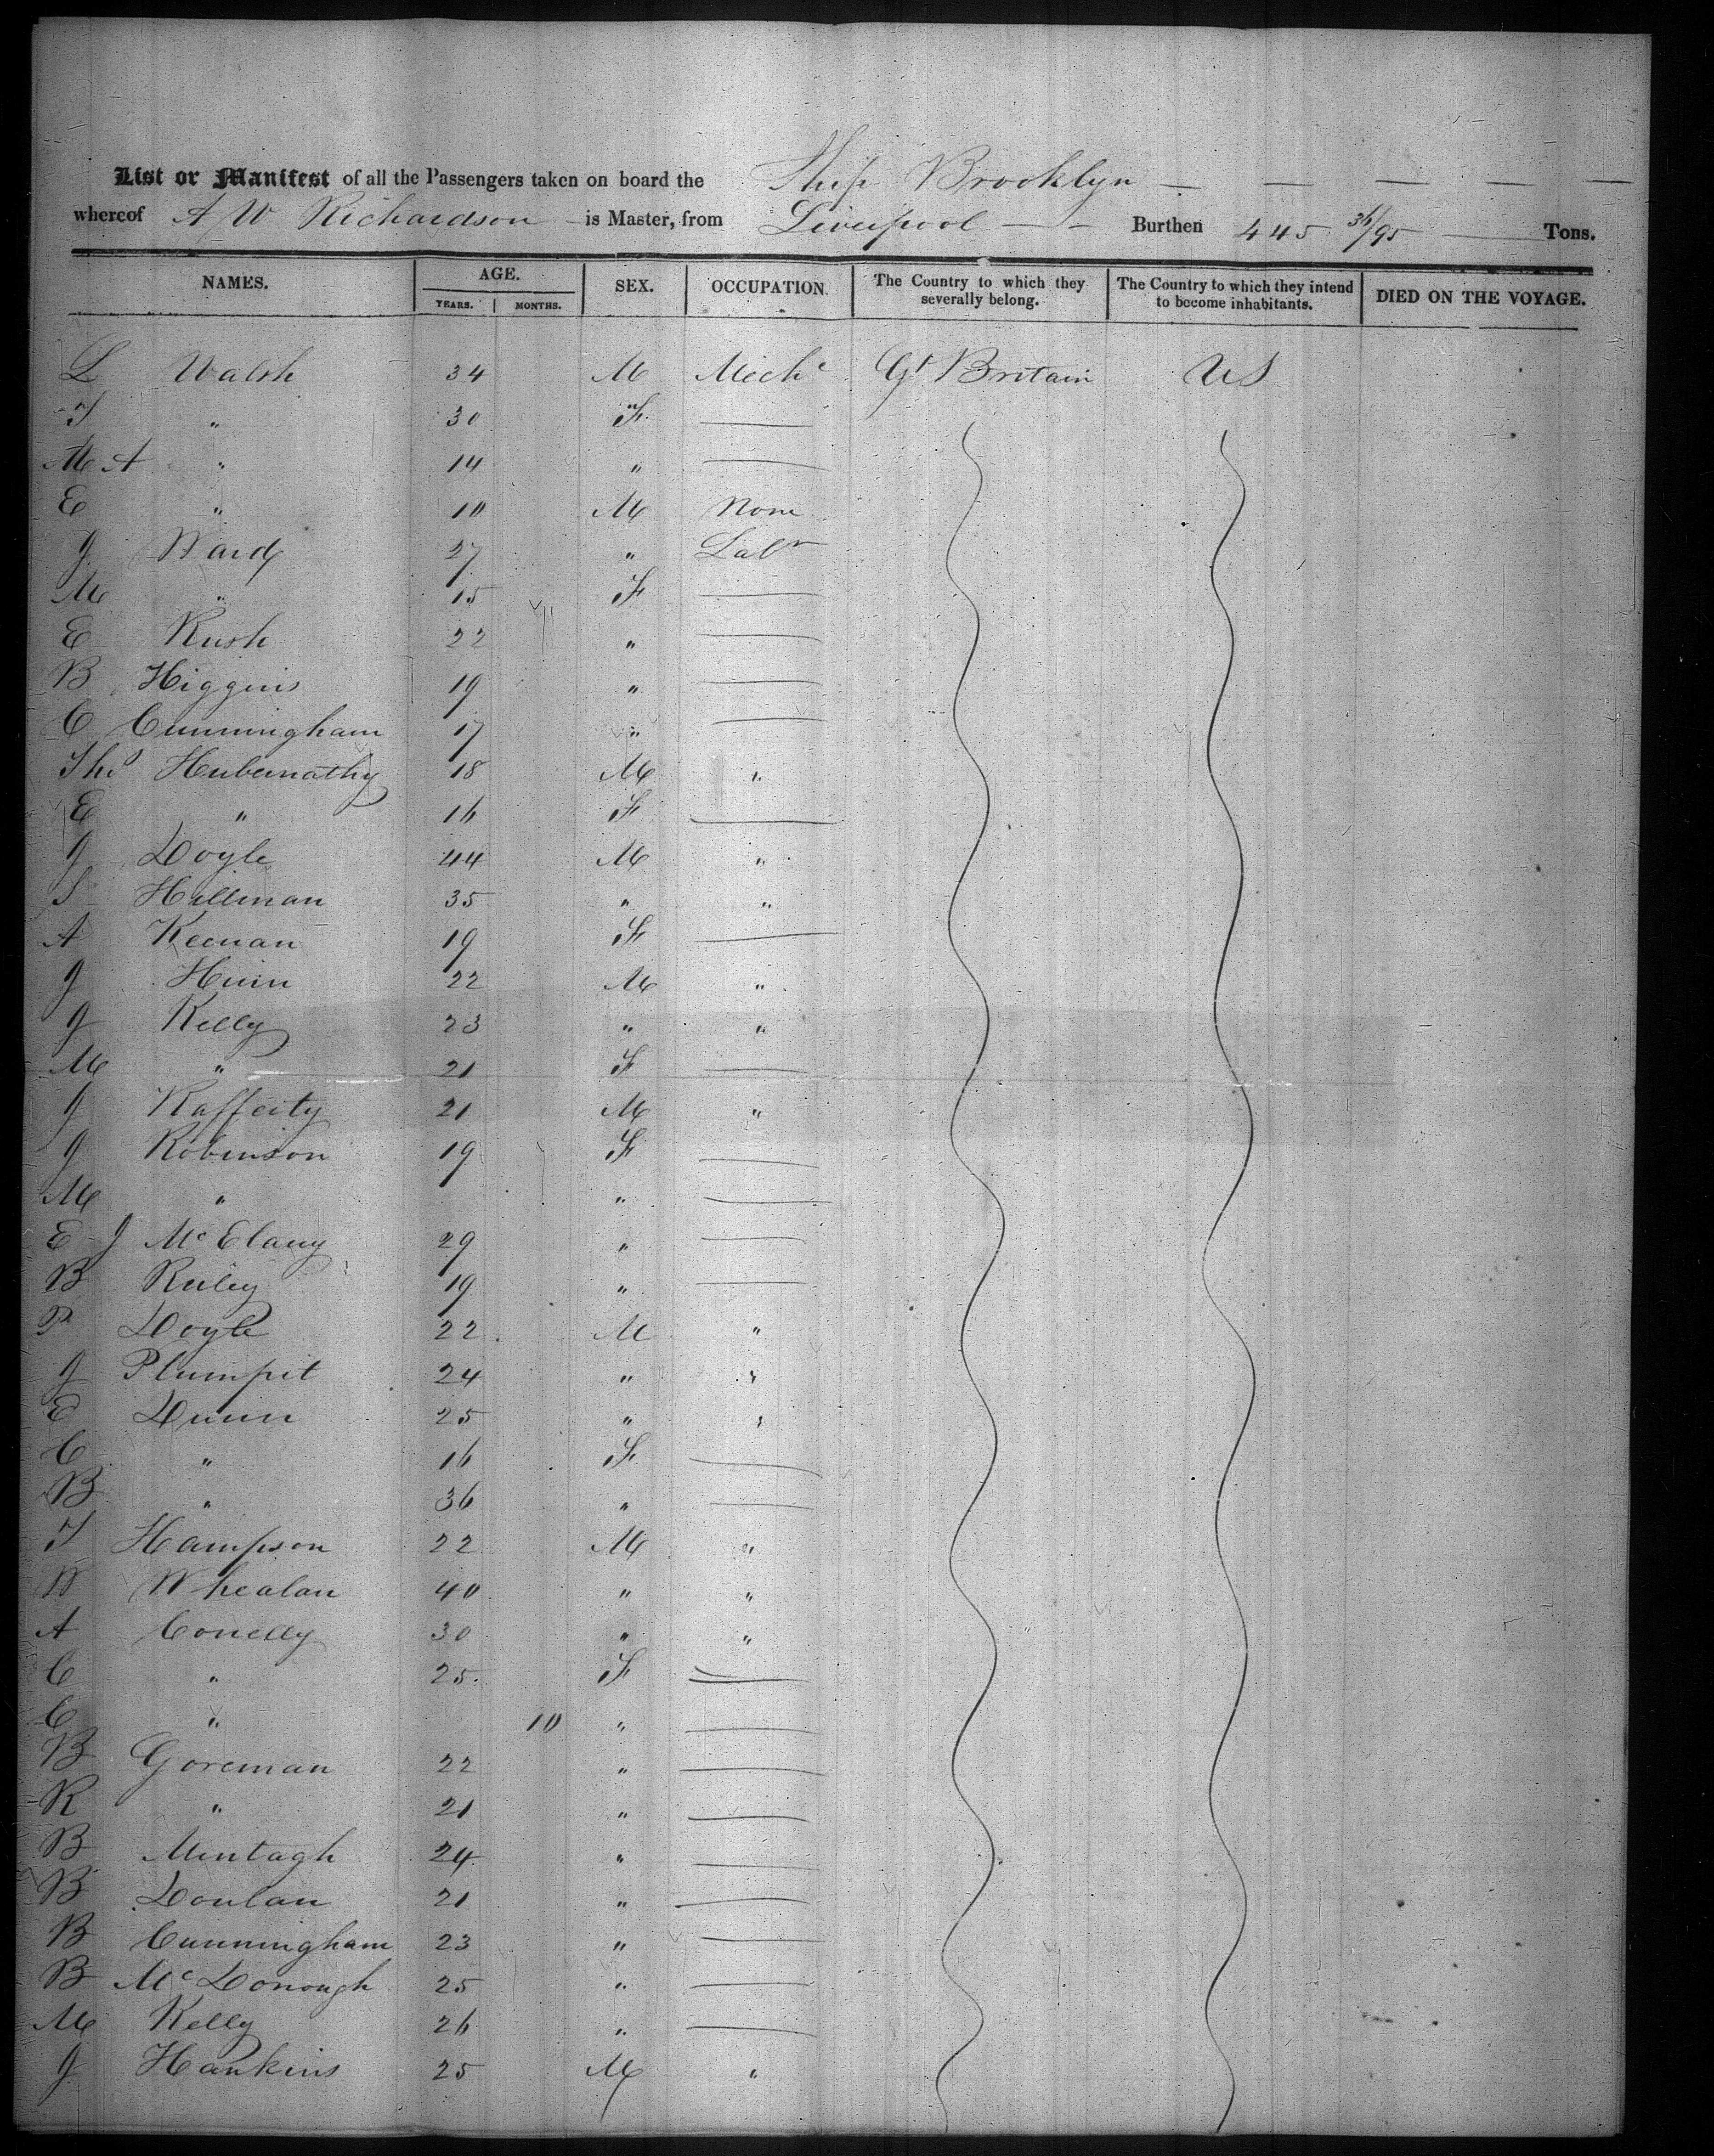 List or Manifest of all the Passengers taken on board the Ship Brooklyn
whereof A W Richardson is Master, from Liverpool Burthen 445 36/95 Tons.
NAMES. AGE. SEX. OCCUPATION. The Country to which they severally belong. The Country to which they intend to become inhabitants. DIED ON THE VOYAGE.
YEARS. MONTHS.
L Walsh 34 M Mechc Gt Britain US
T " 30 F
M A " 14 "
E " 10 M None
J Ward 27 " Labr
M " 15 F
E Rush 22 "
B Higgins 19 "
C Cunningham 17 "
Thos Hubernathy 18 M "
E " 16 F
J Doyle 44 M "
S Hillman 35 " "
A Keenan 19 F
J 22 M "
J Kelly 23 " "
M " 21 F
J Rafferty 21 M "
J Robinson 19 F
M " "
E J McElany 29 "
B Ruley 19 "
P Doyle 22 M "
J Plumpit 24 " "
E Dunn 25 " "
C " 16 F
B " 36 "
T Hampson 22 M "
W Whealan 40 " "
A Conelly 30 " "
C " 25 F
C " 10 "
B Goreman 22 "
R " 21 "
B 24 "
B Donlan 21 "
B Cunningham 23 "
B McDonough 25 "
M Kelly 26 "
J Hankins 25 M "